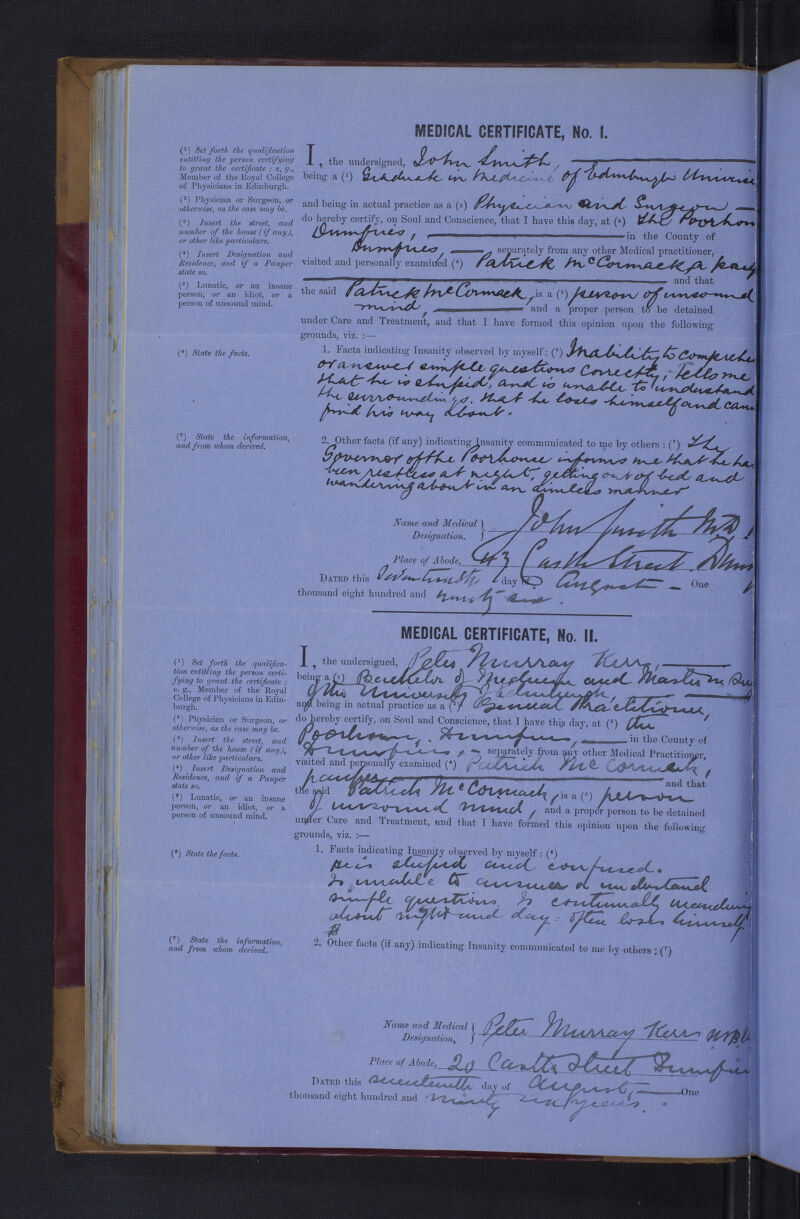 MEDICAL CERTIFICATE, No. I.
(1) Set forth the qualification
entitling the person certifying
to grant the certificate : e. g.,
Member of the Royal College
of Physicians in Edinburgh.
(2) Physician or Surgeon, or
otherwise, as the case may be.
(3) Insert the street, and
number of the house (if any),
or other like particulars.
(4) Insert Designation and
Residence, and if a Pauper
state so.
(5) Lunatic, or an insane
person, or an idiot, or a
person of unsound mind.
(6) State the facts.
(7) State the information,
and from whom derived.
I, the undersigned, John Smith,
being a (1) Graduate in Medicine of Edinburgh
and being in actual practice as a (2) Physician and Surgeon
do hereby certify, on Soul and Conscience, that I have this day, at (3) the
Dumfries, in the County of
Dumfries, separately from any other Medical practitioner,
visited and personally examined (4) Patrick McCormack, a
and that
the said Patrick McCormack, is a (5) person of unsound
mind, and a proper person to be detained
under Care and Treatment, and that I have formed this opinion upon the following
grounds, viz. :—
1. Facts indicating Insanity observed by myself : (6) Inability to
or answer simple questions correctly, tells me
that he is stupid, and is unable to understand
the surroundings. that he loses himself and
find his way about.
2. Other facts (if any) indicating Insanity communicated to me by others : (7) The
Governor of the Poorhouse informs me that he
been restless at night, getting out of bed and
wandering about in an aimless manner
Name and Medical
Designation. John Smith M.D.
Place of Abode, 43 Castle Street
DATED this Seventeenth day of August One
thousand eight hundred and ninety six.
MEDICAL CERTIFICATE, No. II.
(1) Set forth the qualifica-
tion entitling the person certi-
fying to grant the certificate :
e. g., Member of the Royal
College of Physicians in Edin-
burgh.
(2) Physician or Surgeon, or
otherwise, as the case may be.
(3) Insert the street, and
number of the house (if any),
or other like particulars.
(4) Insert Designation and
Residence, and if a Pauper
state so.
(5) Lunatic, or an insane
person, or an idiot, or a
person of unsound mind.
(6) State the facts.
(7) State the information,
and from whom derived.
I, the undersigned, Peter Murray Kerr,
being a (1) Bachelor of Medicine and Master in
of the University of Edinburgh,
and being in actual practice as a (2) General Practitioner,
do hereby certify, on Soul and Conscience, that I have this day, at (3) the
Poorhouse, Dumfries, in the County of
Dumfries, separately from any other Medical Practitioner,
visited and personally examined (4) Patrick McCormack,
pauper and that
the said Patrick McCormack, is a (5) person
of unsound mind, and a proper person to be detained
under Care and Treatment, and that I have formed this opinion upon the following
grounds, viz. :—
1. Facts indicating Insanity observed by myself : (6)
He is stupid and confused.
Is unable to answer or understand
simple questions. Is continually
about night and day: often loses himself
2. Other facts (if any) indicating Insanity communicated to me by others : (7)
Name and Medical
Designation, Peter Murray Kerr
Place of Abode, 20 Castle Street
DATED this seventeenth day of August, One
thousand eight hundred and ninety six years.